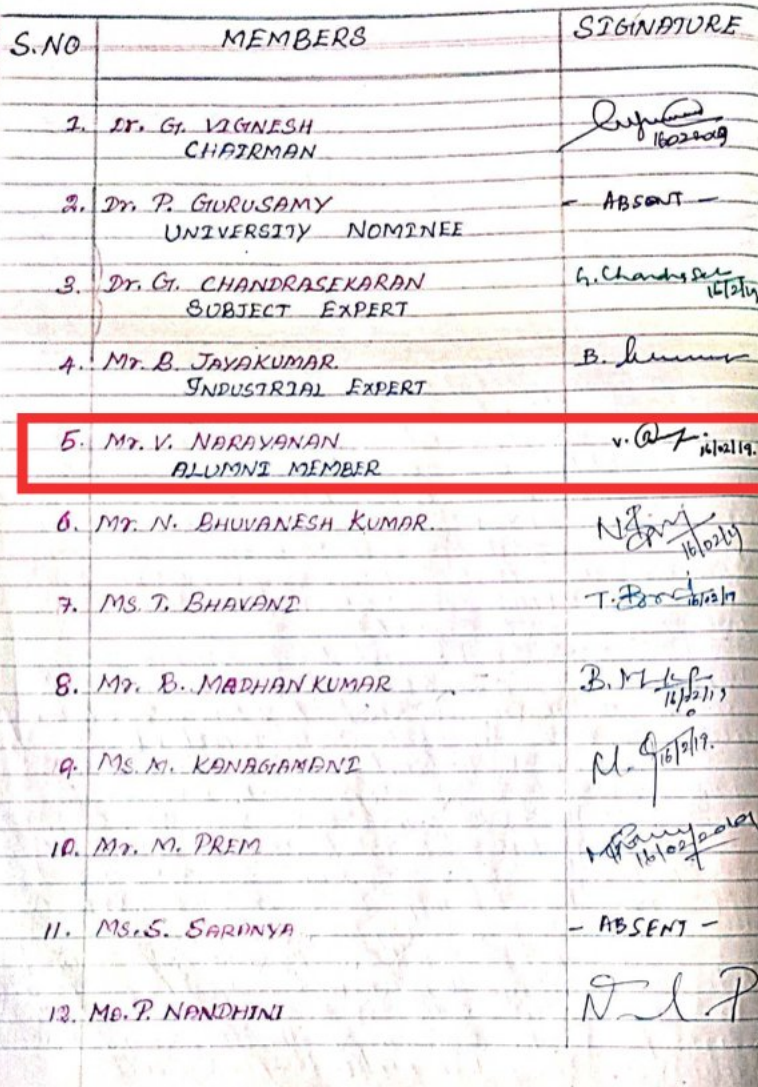 S.NO MEMBERS SIGINATURE
1. Dr. G. VIGNESH
CHAIRMAN 16022019
2. Dr. P. GURUSAMY - ABSENT -
UNIVERSITY NOMINEE
3. Dr. G. CHANDRASEKARAN G. Chandrasek
SUBJECT EXPERT 16/2/19
4. Mr. B. JAYAKUMAR. B.
INDUSTRIAL EXPERT
5. Mr. V. NARAYANAN V.
ALUMNI MEMBER 16/02/19.
6. Mr. N. BHUVANESH KUMAR. 16/02/19
7. MS. T. BHAVANI T. 16/02/19
8. Mr. B. MADHAN KUMAR B. M 16/02/19
9. MS. M. KANAGAMANI M. 16/2/19.
10. Mr. M. PREM 16/02/2019
11. MS. S. SARANYA - ABSENT -
12. MS. P. NANDHINI